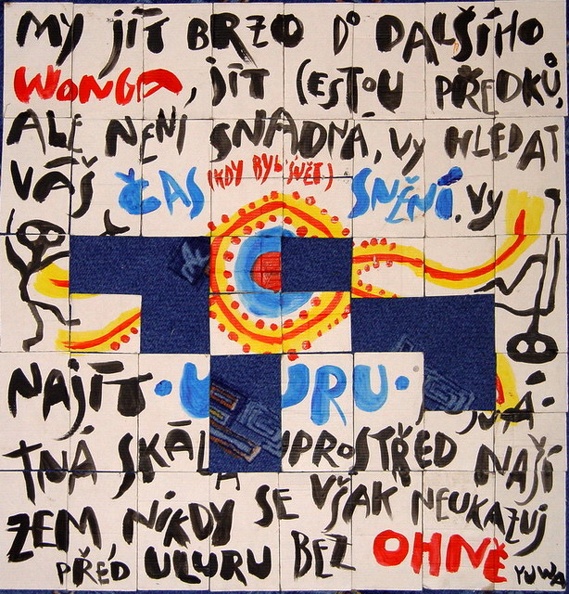 MY JÍT BRZO DO DALŠÍHO
WONGA, JÍT CESTOU PŘEDKŮ,
ALE NENÍ SNADNÁ, VY HLEDAT
VÁŠ ČAS (KDY BYL SVĚT) SNĚNÍ, VY
NAJÍT
TNÁ UPROSTŘED NAŠÍ
ZEM, NIKDY SE VŠAK NEUKAZUJ
PŘED ULURU BEZ OHNĚ YUWA